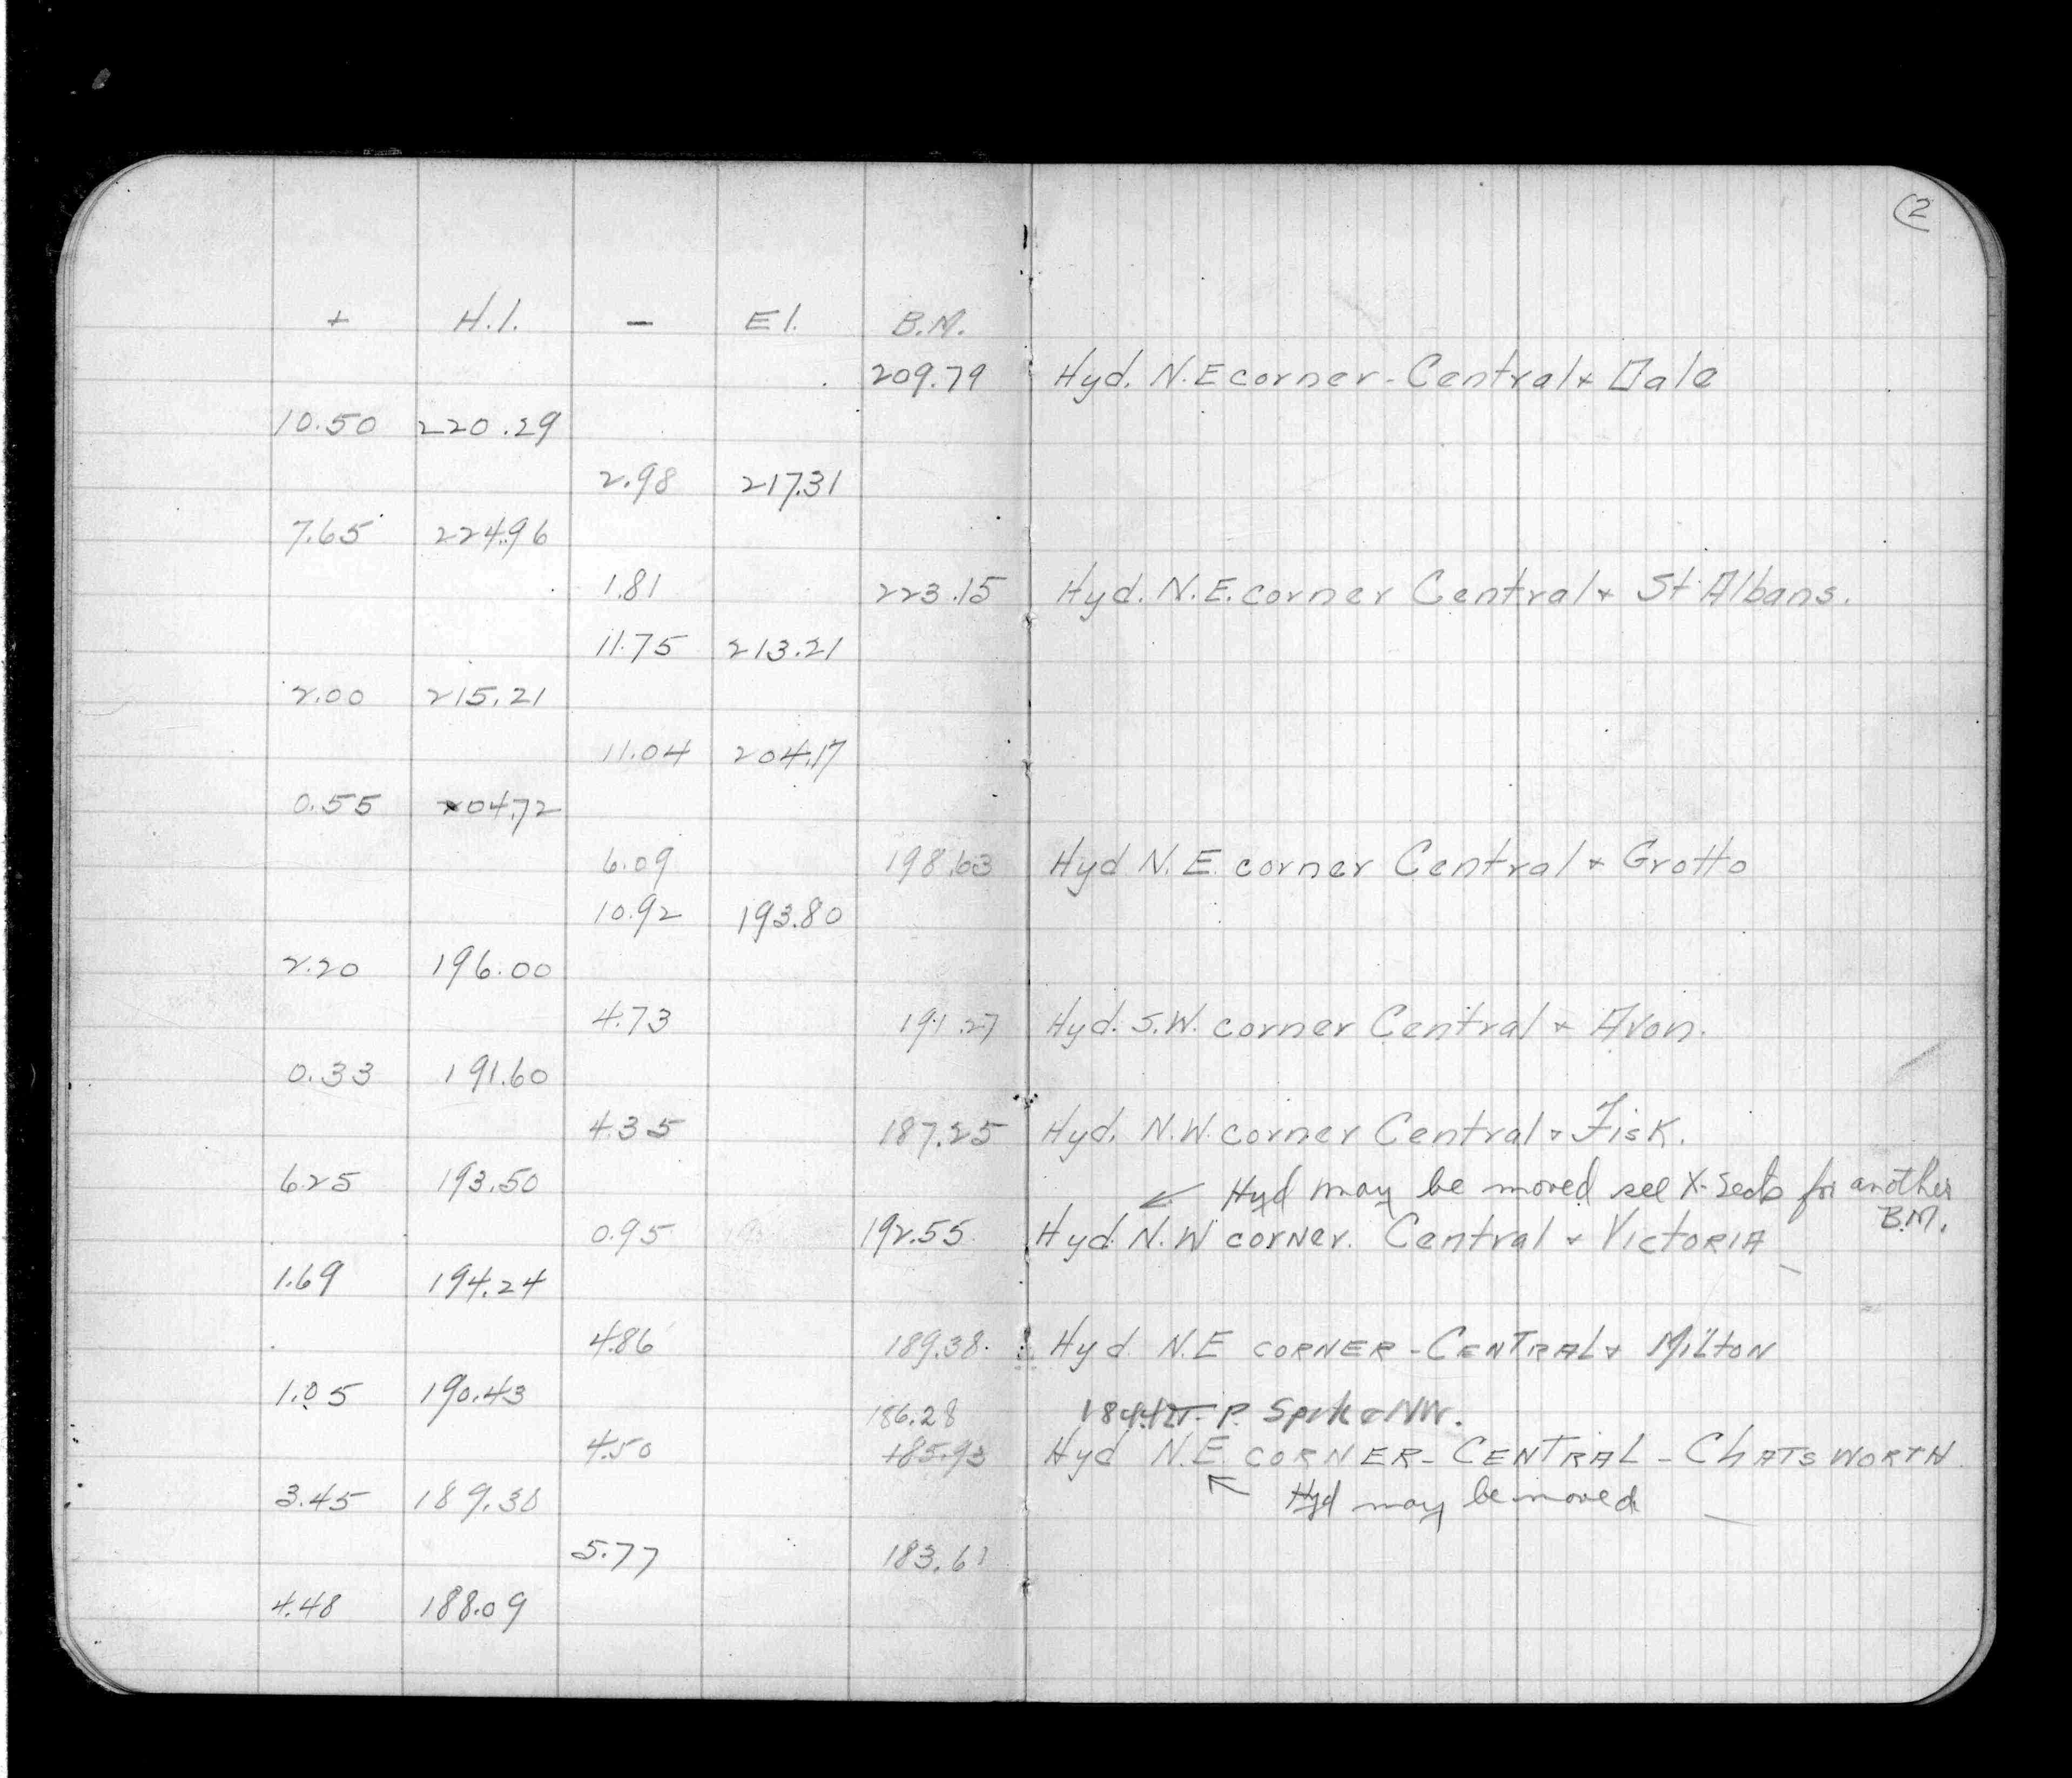 2
+ H.I. − El. B.M.
209.79 Hyd. N.E corner - Central & Dale
10.50 220.29
2.98 217.31
7.65 224.96
1.81 223.15 Hyd. N.E. corner Central & St Albans.
11.75 213.21
2.00 215.21
11.04 204.17
0.55 204.72
6.09 198.63 Hyd N.E. corner Central & Grotto
10.92 193.80
2.20 196.00
4.73 191.27 Hyd. S.W. corner Central & Avon.
0.33 191.60
4.35 187.25 Hyd. N.W. corner Central & Fisk.
6.25 193.50
↙ Hyd may be moved see X-Sects for another B.M.
0.95 192.55 Hyd. N.W corner. Central & Victoria
1.69 194.24
4.86 189.38 Hyd N.E CORNER - CENTRAL & Milton
1.05 190.43
186.28 P. Spike NW.
4.50 185.93 Hyd N.E. CORNER - CENTRAL - CHATSWORTH
↖ Hyd may be moved
3.45 189.38
5.77 183.61
4.48 188.09